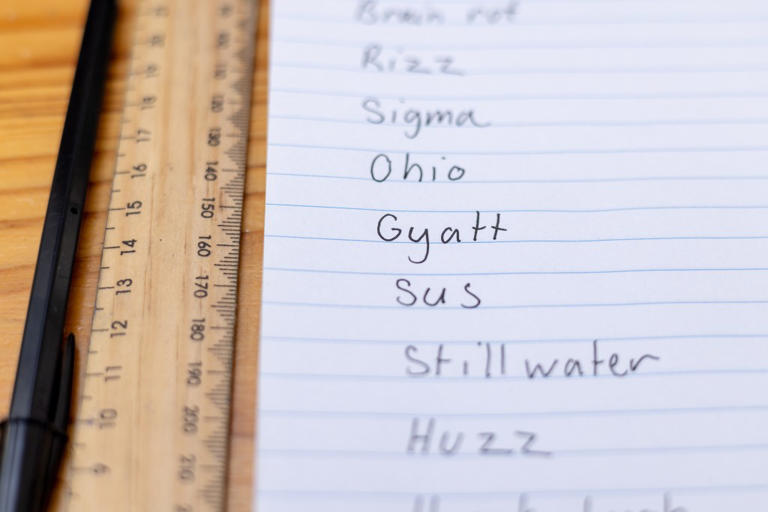 Brain rot
Rizz
Sigma
Ohio
Gyatt
Sus
Still water
Huzz
18
17
16
15
14
13
12
11
10
9
130
140
150
160
170
180
190
200
210